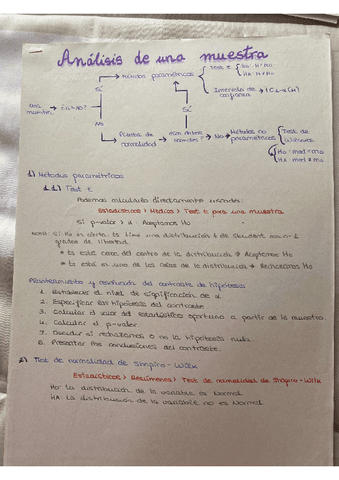 Análisis de una muestra
Métodos paramétricos
Test t
H0: μ = μ0
HA: μ ≠ μ0
Intervalo de confianza → IC1-α(μ)
Sí
Sí
una muestra
¿n>30?
No
Pruebas de normalidad
¿son datos normales?
No
Métodos no paramétricos
Test de Wilcoxon
H0: med = m0
HA: med ≠ m0
1) Métodos paramétricos
1.1) Test t
Podemos calcularlo directamente usando:
Estadísticos > Medias > Test t para una muestra
Si p-valor > α : Aceptamos H0
NOTA: Si H0 es cierta, t0 tiene una distribución t de Student con n-1
grados de libertad.
* t0 está cerca del centro de la distribución → Aceptamos H0
* t0 está en una de las colas de la distribución → Rechazamos H0
Planteamiento y resolución del contraste de hipótesis
1. Establecer el nivel de significación de α
2. Especificar las hipótesis del contraste
3. Calcular el valor del estadístico oportuno a partir de la muestra.
4. Calcular el p-valor
5. Decidir si rechazamos o no la hipótesis nula
6. Presentar las conclusiones del contraste.
2) Test de normalidad de Shapiro-Wilk
Estadísticos > Resúmenes > Test de normalidad de Shapiro-Wilk
H0: la distribución de la variable es Normal
HA: la distribución de la variable no es Normal